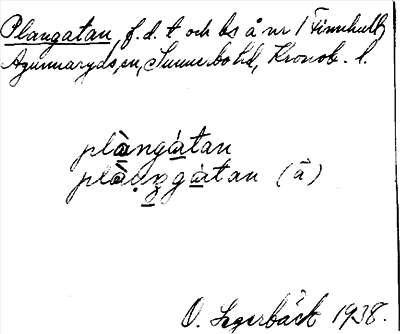 Plangatan, f.d. t och bs å nr 1 Finnhult,
Agunnaryds sn, Sunnerbo hd, Kronob. l.
plàngátan
plàngàtan (ā)
O. Segerbäck 1938.